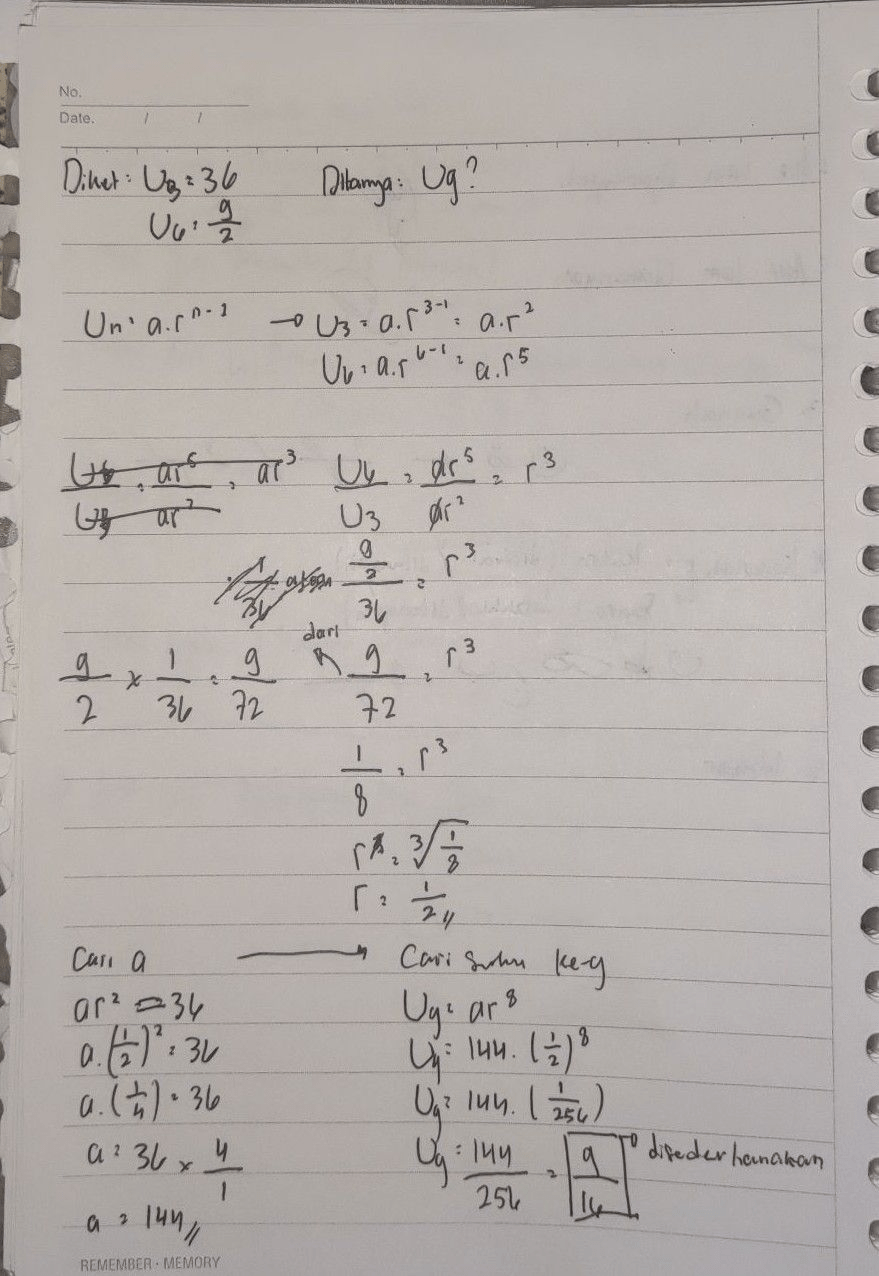 No.
Date. / /
Diket: U3 = 36 Ditanya: U9?
U6 = 9/2
Un = a.r^n-1 → U3 = a.r^3-1 = a.r^2
U6 = a.r^6-1 = a.r^5
U6/U3 = ar^5/ar^2 = ar^3 U6/U3 = ar^5/ar^2 = r^3
(9/2)/36 = r^3
dari
9/2 x 1/36 = 9/72 9/72 = r^3
1/8 = r^3
r = ³√(1/8)
r = 1/2 //
Cari a → Cari suhu ke-9
ar^2 = 36 U9 = ar^8
a.(1/2)^2 = 36 U9 = 144.(1/2)^8
a.(1/4) = 36 U9 = 144.(1/256)
a = 36 x 4/1 U9 = 144/256 = 9/16 disederhanakan
a = 144 //
REMEMBER · MEMORY